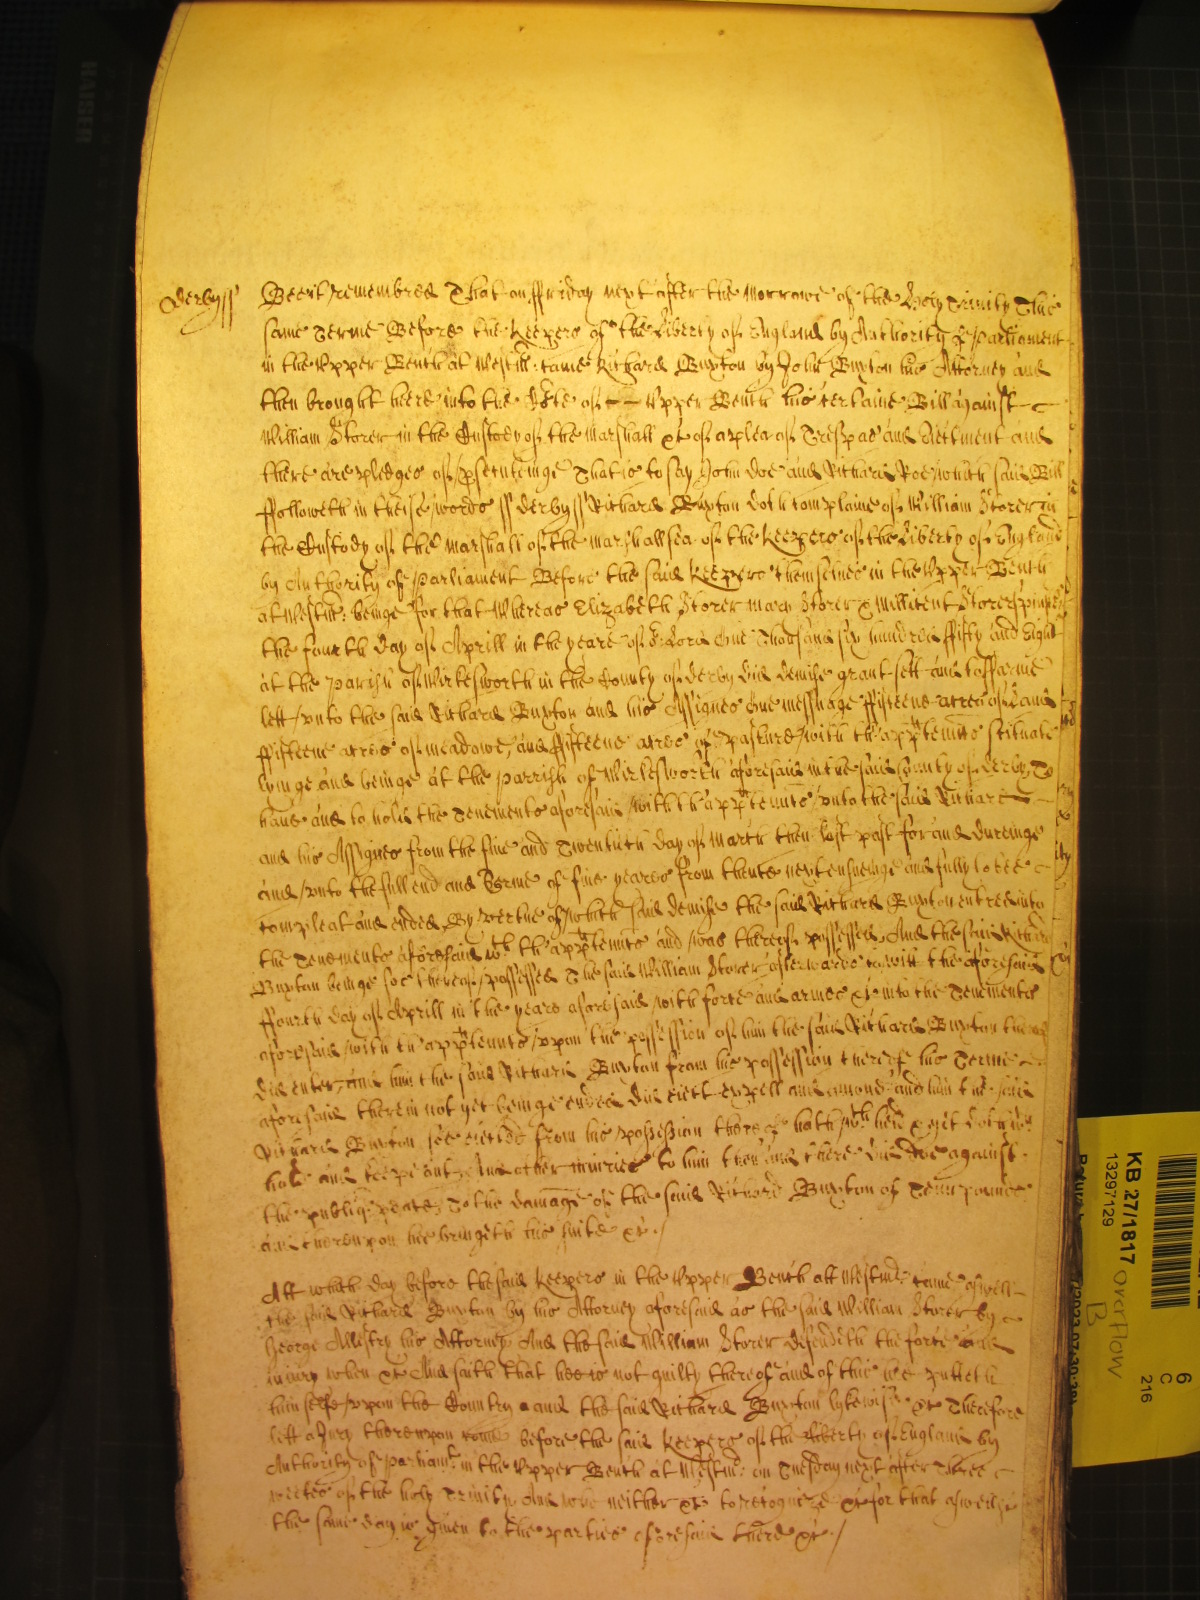 Derby ss Bee it remembred That on ffriday next after the Morrowe of the Holy Trinity This
same Terme Before the Keepers of the Liberty of England by Authority of Parliament
in the Upper Bench at Westm: came Richard Buxton by John Buxton his Attorney and
then brought heere into the Co:te of Upper Bench his certaine Bill against
William Storer in the Custody of the Marshall &c of a plea of Trespas and Eiectment and
there are pledges of psecuteinge That is to say John Doe and Richard Roe which said Bill
ffolloweth in theise words ss Derby ss Richard Buxton doth complaine of William Storer in
the Custody of the Marshall of the Marshallsea of the Keepers of the Liberty of England
by Authority of Parliament Before the said Keepers themselves in the Upper Bench
at Westm: beinge for that Whereas Elizabeth Storer Mary Storer & Millicent Storer
the fourth day of Aprill in the yeare of Lord One Thousand six hundred ffifty and Eight
at the Parish of Wirkesworth in the County of Derby did demise grant sett and to ffarme
lett unto the said Richard Buxton and his Assignes One messuage ffifteene acres of Land
ffifteene acres of meadowe and ffifteene acres of pasture with th'apptennts scituate
lyinge and beinge at the Parrish of Wirkesworth aforesaid in the said County of Derby To
haue and to hold the Tenements aforesaid with th'apptennts unto the said Richard
and his Assignes from the fiue and Twentieth day of March then last past for and dureinge
and unto the full end and Terme of fiue yeares from thence next ensueinge and fully to bee
compleat and ended By vertue of which said demise the said Richard Buxton entred into
the Tenements aforesaid wth th'apptennts and was thereof possessed And the said Richard
Buxton beinge soe thereof possessed The said William Storer afterwards to witt the aforesaid
ffourth day of Aprill in the yeare aforesaid with force and armes &c into the Tenements
aforesaid with th'apptennts upon the possession of him the said Richard Buxton thereof
did enter and him the said Richard Buxton from his possession thereof his Terme
aforesaid therein not yet beinge ended did eiect expell and amoue and him the said
Richard Buxton soe eiected from his possession thereof hath & yet doth
hold and keepe out And other iniuries to him then and there did doe against
the publiq peace To the damage of the said Richard Buxton of Tenn pounds
and thereupon hee bringeth his suite &c
Att which day before the said Keepers in the Upper Bench att Westm: came aswell
the said Richard Buxton by his Attorney aforesaid as the said William Storer by
George Allestry his Attorney And the said William Storer defendeth the force and
iniury when &c And saith that hee is not guilty thereof and of this hee putteth
himselfe upon the Country and the said Richard Buxton lykewise &c Therefore
lett a Jury thereupon come before the said Keepers of the Liberty of England by
Authority of Parliamt: in the Upper Bench at Westm: on Tuesday next after Three
weekes of the holy Trinity And who neither &c to recognize &c for that aswell &c
the same day is given to the parties aforesaid there &c
KAISER
KB 27/1817
13297129
OVERFLOW
B
6
C
216